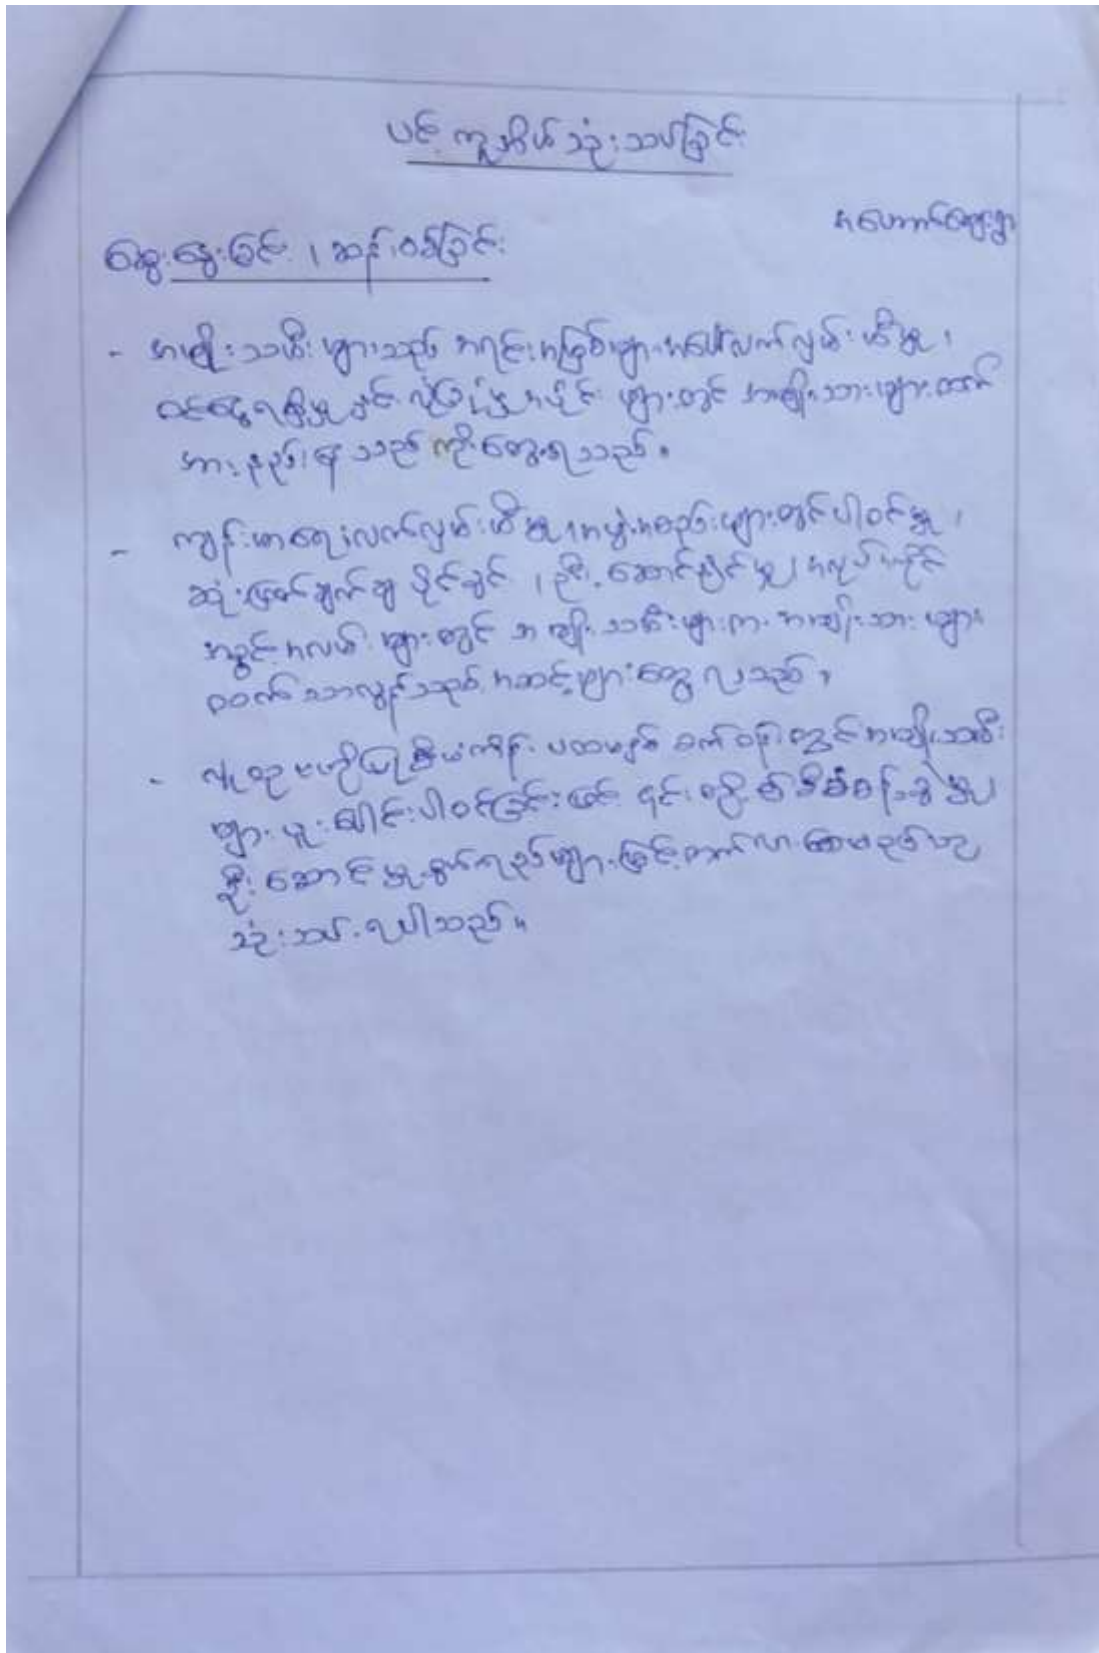 ပင့်ကူအိမ်သုံးသပ်ခြင်း
ဆွေးနွေးခြင်း ၊ ဆန်းစစ်ခြင်း
- အမျိုးသမီးများသည် အရင်းအမြစ်များအပေါ်လက်လှမ်းမီမှု ၊
ဝင်ငွေရရှိမှုနှင့် လုံခြုံမှုအပိုင်းများတွင် အမျိုးသားများထက်
အားနည်းနေသည်ကိုတွေ့ရသည်။
- ကျန်းမာရေးလက်လှမ်းမီမှု ၊ အဖွဲ့အစည်းများတွင်ပါဝင်မှု ၊
ဆုံးဖြတ်ချက်ချပိုင်ခွင့် ၊ ဦးဆောင်နိုင်မှု၊ အလုပ်အကိုင်
အခွင့်အလမ်းများတွင် အမျိုးသမီးများက အမျိုးသားများ
ထက် သာလွန်သည့်အဆင့်များတွေ့ရသည်။
- လူထုဗဟိုပြုစီမံကိန်း ပထမနှစ် စက်ဝန်းတွင်အမျိုးသမီး
များပူးပေါင်းပါဝင်ခြင်းဖြင့် ၎င်းတို့၏စီမံခန့်ခွဲမှု၊
ဦးဆောင်မှုစွမ်းရည်များမြင့်တက်လာစေမည်ဟု
သုံးသပ်ရပါသည်။